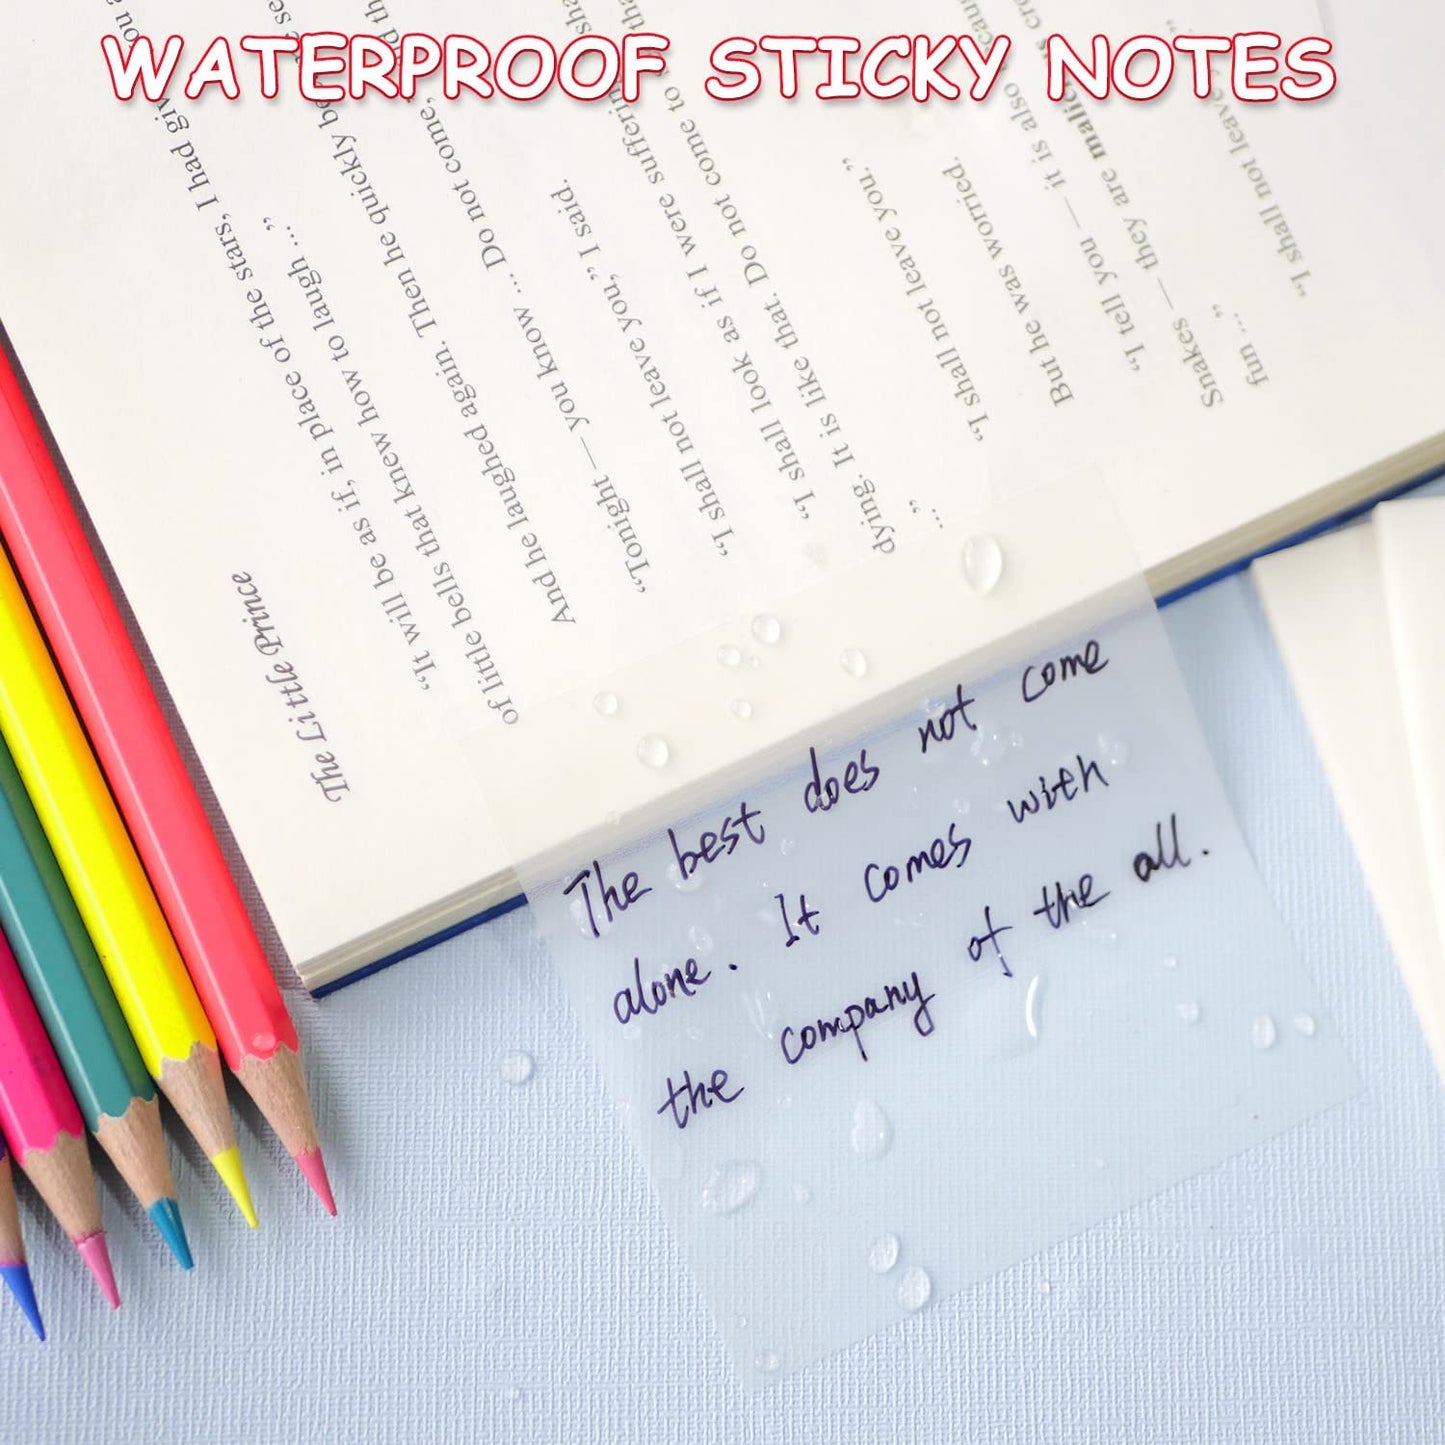 WATERPROOF STICKY NOTES
The Little Prince
“It will be as if, in place of the stars, I had
of little bells that knew how to laugh ...”
And he laughed again. Then he quickly
“Tonight — you know ... Do not come,
“I shall not leave you,” I said.
“I shall look as if I were
dying. It is like that. Do not come to
...”
“I shall not leave you.”
But he was worried.
“I tell you — it is also
Snakes — they are
fun ...”
“I shall not leave
The best does not come
alone. It comes with
the company of the all.